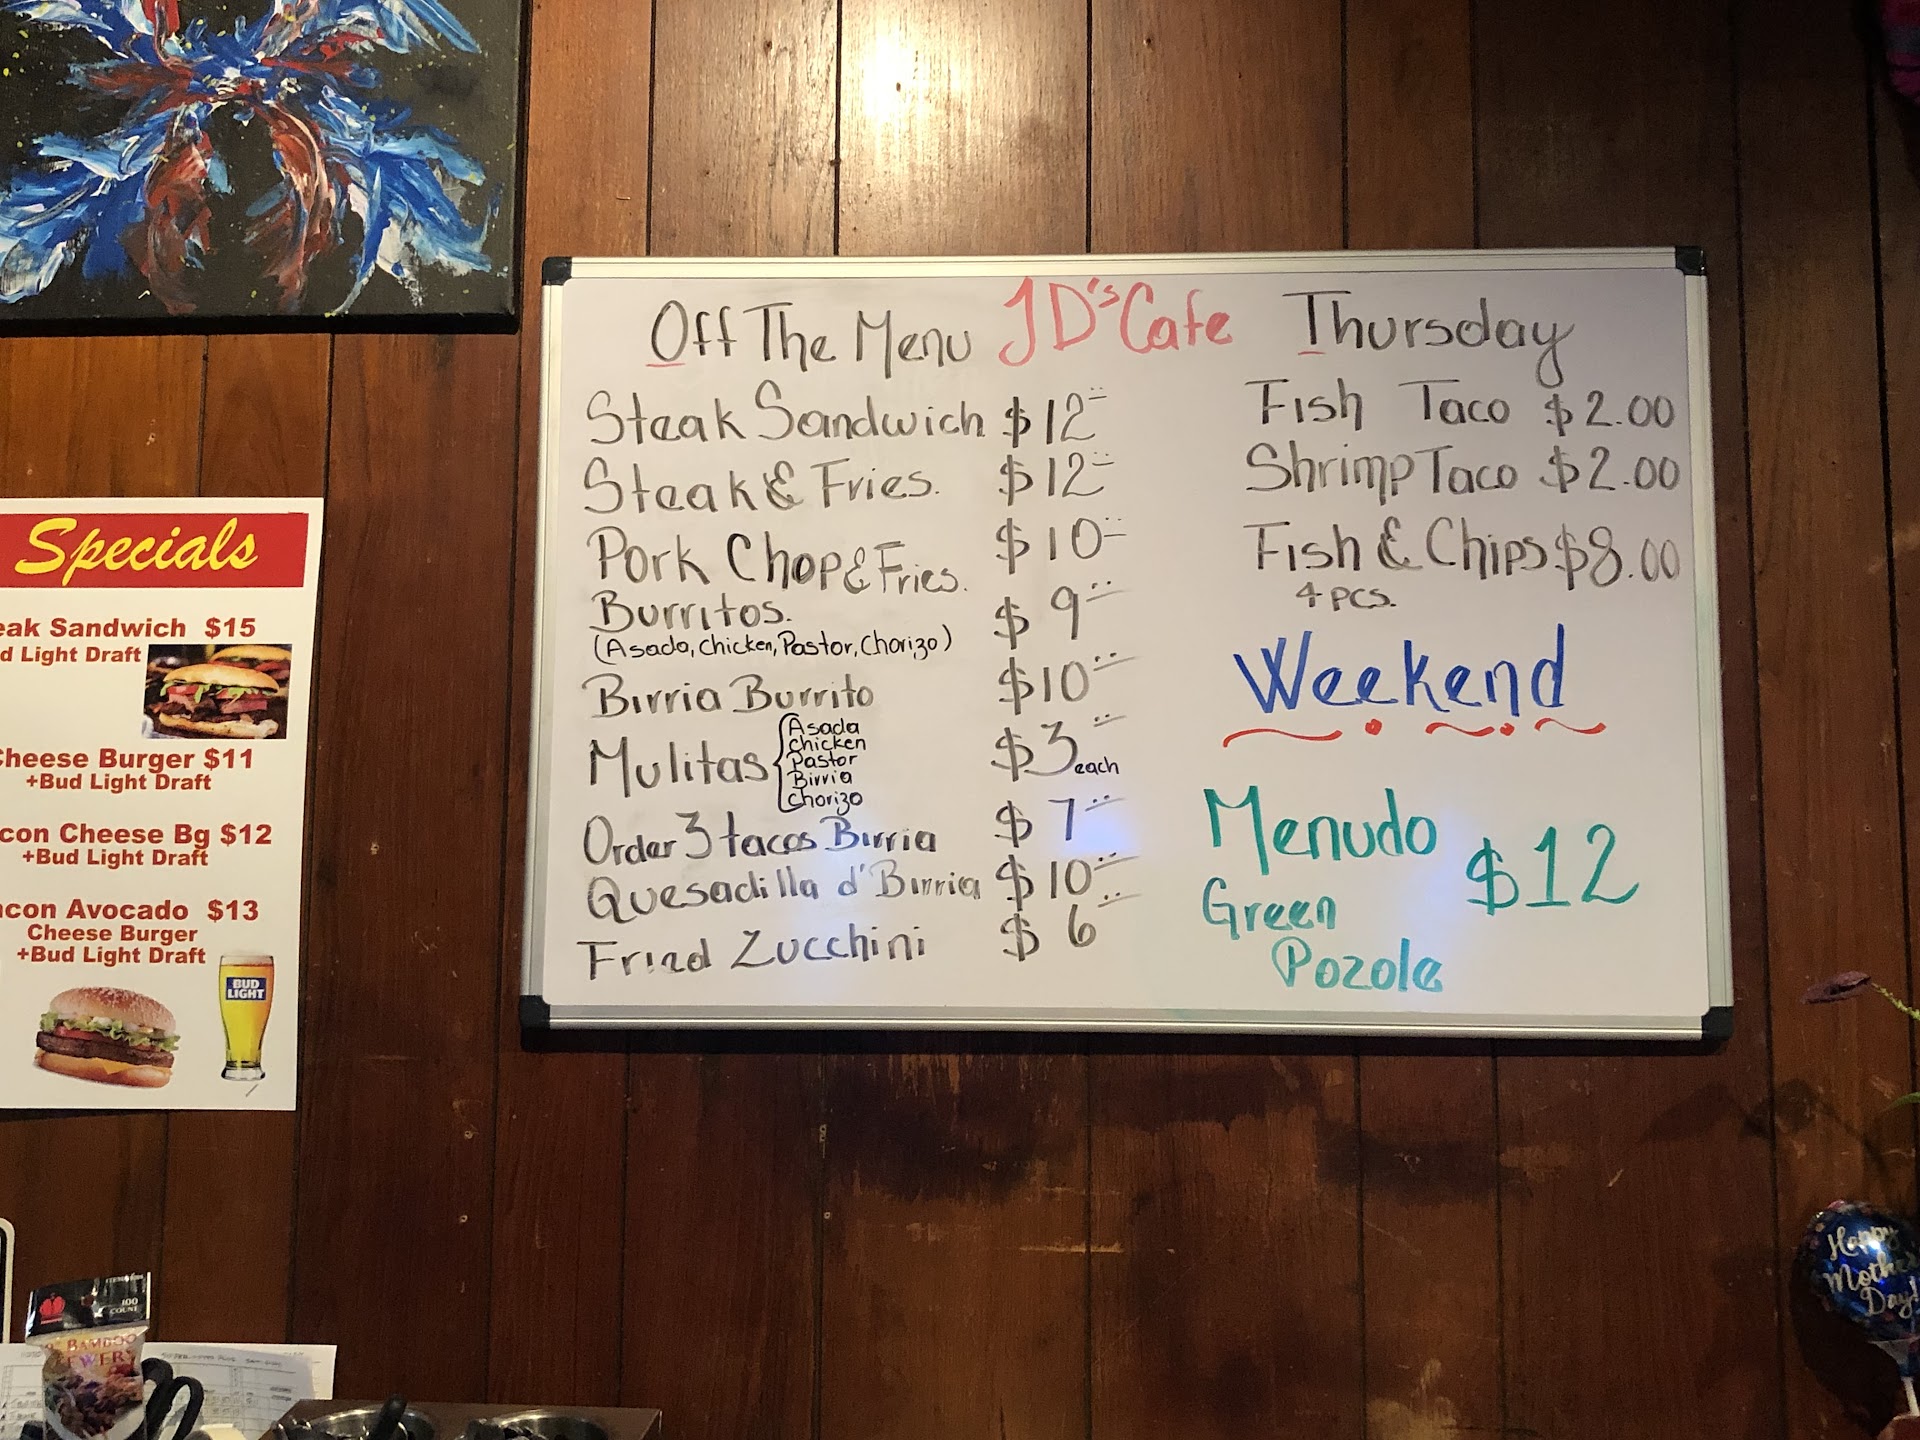 Off The Menu JD's Cafe Thursday
Steak Sandwich $12
Steak & Fries. $12
Pork Chop & Fries. $10
Burritos. $9
(Asada, Chicken, Pastor, Chorizo)
Birria Burrito $10
Mulitas $3 each
Asada
Chicken
Pastor
Birria
Chorizo
Order 3 tacos Birria $7
Quesadilla d' Birria $10
Fried Zucchini $6
Fish Taco $2.00
Shrimp Taco $2.00
Fish & Chips $8.00
4 pcs.
Weekend
Menudo $12
Green
Pozole
Specials
eak Sandwich $15
d Light Draft
heese Burger $11
+Bud Light Draft
con Cheese Bg $12
+Bud Light Draft
acon Avocado $13
Cheese Burger
+Bud Light Draft
BUD
LIGHT
100
COUNT
BAMBOO
Happy
Mothe
Day!